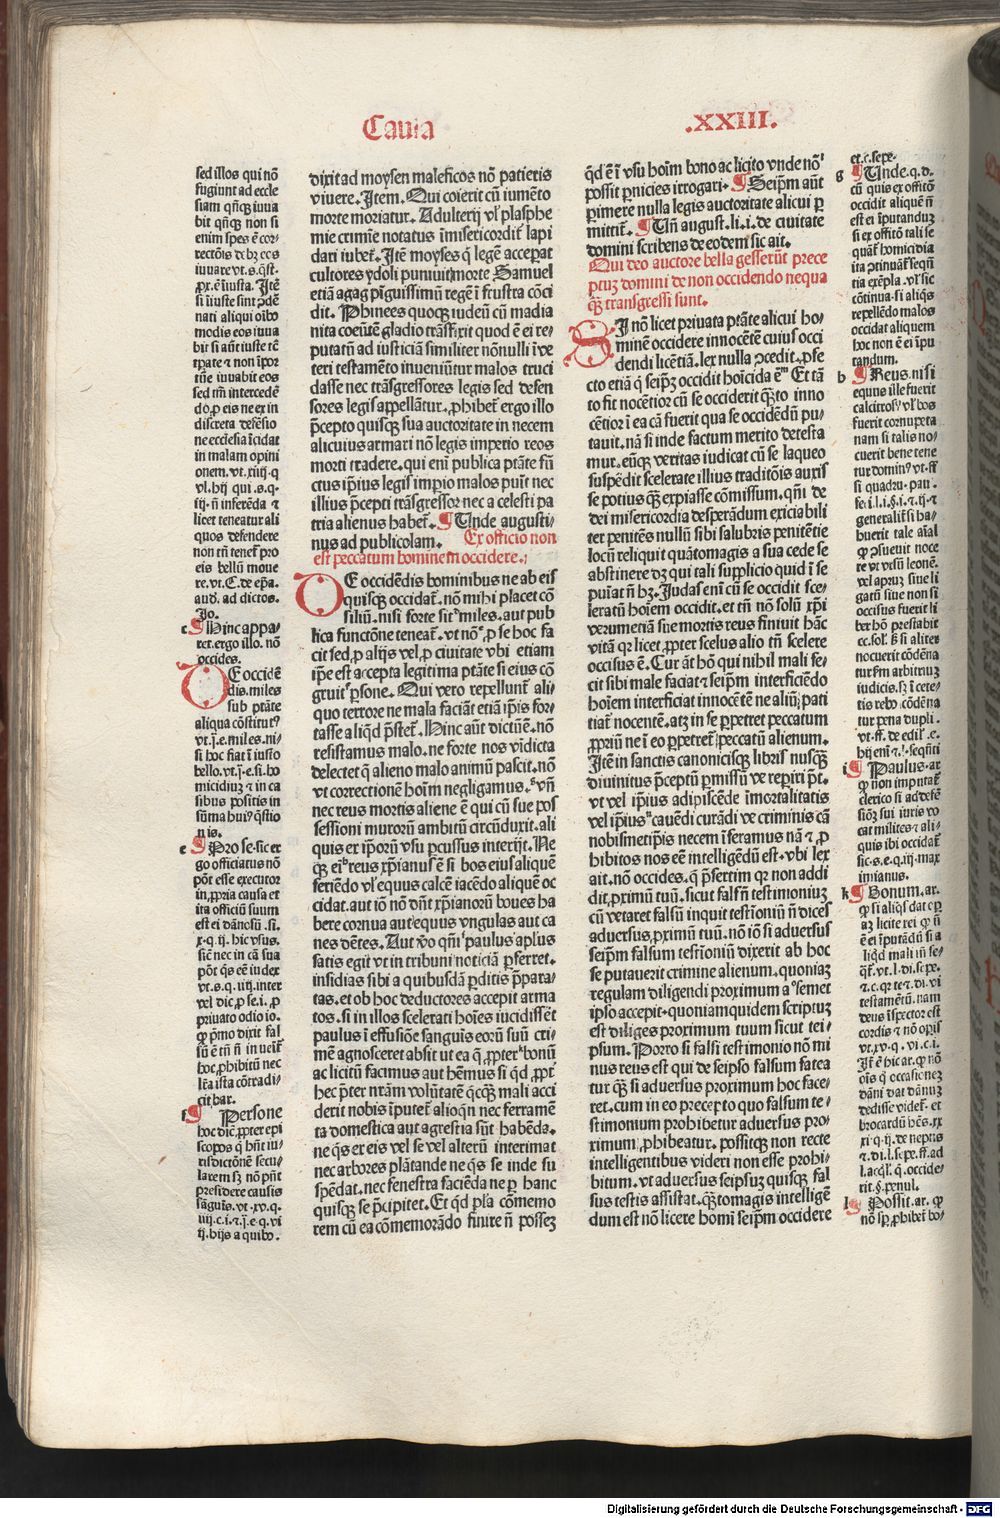 Causa
.XXIII.
sed illos qui nō
fugiunt ad eccle
siam qñqꝫ iuua
bit qñqꝫ non si
enim spes ē cor-
nati aliqui oībo
modis eos iuua
sed tm̄ intercedē
do ꝓ eis ne ex in
discreta defēsio
ne ecclesia īcidat
in malam opini
onem. vt. xiiij. q
licet teneatur ali
quos defendere
non tn̄ tenet᷑ pro
eis bellū moue
re. vt. C. de ep̄a.
aud. ad dictos.
Jo.
c ¶ Hinc appa-
ret. ergo illo. nō
occides.
DE occidē
dis. miles
sub ptāte
aliqua cōstitut᷒
vt. j. e. miles. ni-
si hoc fiat ī iusto
bello. vt. j. e. si. ho
micidiuꝫ ⁊ in ca
sibus positis in
sūma hui᷒ q̄stio
nis.
e ¶ Pro se. sic er
go officiatus nō
pōt esse executor
in ꝓpria causa et
ita officiū suum
est ei dānosū. si.
x. q. ij. hic vsus.
sic nec in cā sua
pōt q̄s eē iudex
vt. s. q. iiij. inter
vel dic ꝓ se. i. ꝓ
priuato odio io.
hoc ꝓhibitū nec
lr̄a ista cōtradi-
cit bar.
f ¶ Persone
hoc dic̄ ꝓpter epi
scopos q̄ hn̄t iu-
risdictōnē secu-
larem sꝫ nō pn̄t
presidere causis
sāguīs. vt. xv. q.
iiij. c. i. ⁊. j. e. q. vi
ij. hijs a quibo.
dixit ad moysen maleficos nō patieris
viuere. Jtem. Qui coierit cū iumēto
morte moriatur. Adulterij vl᷑ plasphe
mie crimīe notatus īmisericordit᷑ lapi
dari iubet᷑. Jtē moyses q̄ legē acceꝑat
cultores ydoli puniuit morte Samuel
etiā agag pīguissimū regē ī frustra cōci
dit. Phinees quoqꝫ iudeū cū madia
nita coeūtē gladio trāsfixit quod ē ei re-
putatū ad iusticiā similiter nōnulli ī ve
teri testamēto inueniūtur malos truci
dasse nec trāsgressores legis sed defen
sores legis appellātur. ꝓhibet᷑ ergo illo
p̄cepto quisqꝫ sua auctoritate in necem
alicuius armari nō legis imperio reos
morti tradere. qui eni publica ptāte fū
ctus ip̄ius legis impio malos puīt nec
illius p̄cepti trāsgressor nec a celesti pa
tria alienus habet᷑. ¶ Unde augusti-
nus ad publicolam. Ex officio non
est peccatum hominem occidere.
DE occidēdis hominibus ne ab eis
quisqꝫ occidat᷑. nō mihi placet cō
siliū. nisi forte sit miles. aut pub
lica functōne teneat᷑. vt nō ꝓ se hoc fa
cit sed ꝓ alijs vel ꝓ ciuitate vbi etiam
ip̄e est accepta legitima ptāte si eius cō
gruit ꝑsone. Qui vero repellunt᷑ ali-
quo terrore ne mala faciāt etiā ip̄is for-
tasse aliqd̄ p̄stet᷑. Hinc aūt dictūē. nō
resistamus malo. ne forte nos vidicta
delectet q̄ alieno malo animū pascit. nō
vt correctionē hoīm negligamus. vn̄
nec reus mortis aliene ē qui cū sue pos
sessioni murorū ambitū circūduxit. ali
quis ex ip̄orū vsu ꝑcussus interijt. Ne
qꝫ ei reus xp̄ianus ē si bos eius aliquē
feriēdo vl᷑ equus calcē iacēdo aliquē oc
cidat. aut iō nō dn̄t xp̄ianorū boues ha
bere cornua aut equus vngulas aut ca
nes dētes. Aut v̄o qn̄i paulus aplus
satis egit vt in tribuni noticiā ꝑferret.
insidias sibi a quibusdā ꝑditis p̄para-
tas. et ob hoc deductores accepit arma
tos. si in illos scelerati hoīes īcidissēt
paulus ī effusiōe sanguīs eorū suū cri-
mē agnosceret absit vt ea q̄ ꝓpter bonū
ac licitū facimus aut hēmus si qd̄ ꝓpt᷑
hec p̄ter nr̄am volūtatē q̄cqꝫ mali acci
derit nobis īputet᷑ alioqn̄ nec ferramē
ta domestica aut agrestia sūt habēda.
ne q̄s er eis vel se vel alterū interimat
nec arbores plātande ne q̄s se inde su
spēdat. nec fenestra faciēda ne ꝑ hanc
quisqꝫ se p̄cipitet. Et qd̄ pl̄a cōmemo
rem cū ea cōmemorādo finire n̄ posseꝫ
qd̄ ē ī vsu hoīm bono ac licito vnde nō
possit ꝑnicies irrogari. ¶ Seip̄m aūt
ꝑimere nulla legis auctoritate alicui ꝑ
mittit᷑. ¶ Un̄ august. li. i. de ciuitate
domini scribens de eodem sic ait.
Qui deo auctore bella gesserūt prece
ptuꝫ domini de non occidendo nequa
q̄ꝫ transgressi sunt.
SJ nō licet priuata ptāte alicui ho-
minē occidere innocētē cuius occi
dendi licētiā. lex nulla ꝯcedit. ꝓfe
cto etiā q̄ seip̄ꝫ occidit hoīcida ē Et tā
to fit nocētior cū se occiderit q̄ꝫto inno
cētior ī ea cā fuerit qua se occidēdū pu-
tauit. nā si inde factum merito detesta
mur. eūqꝫ veritas iudicat cū se laqueo
suspēdit scelerate illius traditōis auxis
se potius q̄ꝫ expiasse cōmissum. qn̄i de
dei misericordia desperādum exiciabili
ter penitēs nullū sibi salubris penitētie
locū reliquit quātomagis a sua cede se
abstinere dꝫ qui tali supplicio quid ī se
puīat n̄ hꝫ. Judas eni cū se occidit sce-
leratū hoīem occidit. et tn̄ nō solū xp̄i
verumetiā sue mortis reus finiuit hāc
vitā qꝛ licet ꝓpter scelus alio tn̄ scelere
occisus ē. Cur āt hō qui nihil mali fe-
cit sibi male faciat ⁊ seip̄m interficiēdo
hoīem interficiat innocētē ne aliū pati
tiat᷑ nocentē. atqꝫ in se ꝑpetret peccatum
ꝓpriū ne ī eo ꝑpetret᷑ peccatū alienum.
Jtē in sanctis canonicisqꝫ libris nusq̄ꝫ
diuinitus p̄ceptū ꝑmissū ve reꝑiri p̄t.
vt vel ip̄ius adipiscēde īmortalitatis
vel ip̄ius cauēdi curādi ve criminis cā
nobismetip̄is necem īferamus nā ⁊ ꝓ
hibitos nos eē intelligēdū est. vbi lex
ait. nō occides. q̄ p̄sertim qꝛ non addi
dit ꝓximū tuū. sicut falsū testimoniuꝫ
cū vetaret falsū inquit testīoniū n̄ dices
aduersus ꝓximū tuū. nō iō si aduersus
seip̄m falsum testīoniū dixerit ab hoc
se putauerit crimine alienum. quoniaꝫ
regulam diligendi proximum a semet
ipso accepit. quoniamquidem scriptuꝫ
est diliges proximum tuum sicut tei-
psum. Porro si falsi testimonio nō mi
nus reus est qui de seipso falsum fatea
tur q̄ꝫ si aduersus proximum hoc face-
ret. cum in eo precepto quo falsum te-
stimonium prohibetur aduersus pro-
ximum ꝓhibeatur. possitqꝫ non recte
intelligentibus videri non esse prohi-
bitum. vt aduersus seipsuꝫ quisqꝫ fal
sus testis assistat. q̄ꝫtomagis intelligē
dum est nō licere homī seip̄m occidere
et. c. sepe.
g ¶ Unde. q. d.
cū quis ex offītō
occidit aliquē n̄
est ei īputanduꝫ
si ex offītō tali se
quāt᷑ homicidia
tia exēpla. vl᷑ sic
cōtinua. si aliq̄s
repellēdo malos
occidat aliquem
hoc non ē ei īpu
tandum.
h ¶ Reus. nisi
equus ille fuerit
calcitros᷒ vl᷑ bos
fuerit cornupeta
nam si talis no-
cuerit bene tene
tur domin᷒ vt. ff
si quadru. pau.
generalit᷑ si ha-
buerit tale aīal
re vt vrsū leonē.
vel apruꝫ siue li
gatū siue non si
occisus fuerit li
ber hō prestabit
nocuerit cōdēna
tur ẜm arbitriuꝫ
iudicis. sꝫ ī cete-
tis rebo cōdēna
tur pena dupli.
vt. ff. de edil. e.
i ¶ Paulus. ar
ꝙ non imputat᷑
clerico si ad defē
siōꝫ sui iuris vo
cat milites ⁊ ali-
quis ibi occidat᷑
sic. s. e. q. iij. max
imianus.
k ¶ Bonum. ar.
ꝙ si aliq̄s dat oꝑ
aꝫ licite rei ꝙ n̄
ē ei īputādū si a
liqd̄ mali īn̄ se-
q̄t᷑. vt. l. di. sepe.
testamētū. nam
deus īspector est
cordis ⁊ nō oꝑis
vt. xv. q. vi. c. i.
Jt᷑ ē hic ar. ꝙ nō
oīs q̄ occasioneꝫ
dāni dat dānuꝫ
dedisse videt᷑. et
xi. q. ij. de nepris
⁊. di. l. sepe. ff. ad
l. acql᷑. q̄. occide-
rit. §. penul.
l ¶ Possit. ar. ꝙ
nō sꝑ ꝓhibet᷑ bo-
Digitalisierung gefördert durch die Deutsche Forschungsgemeinschaft - DFG